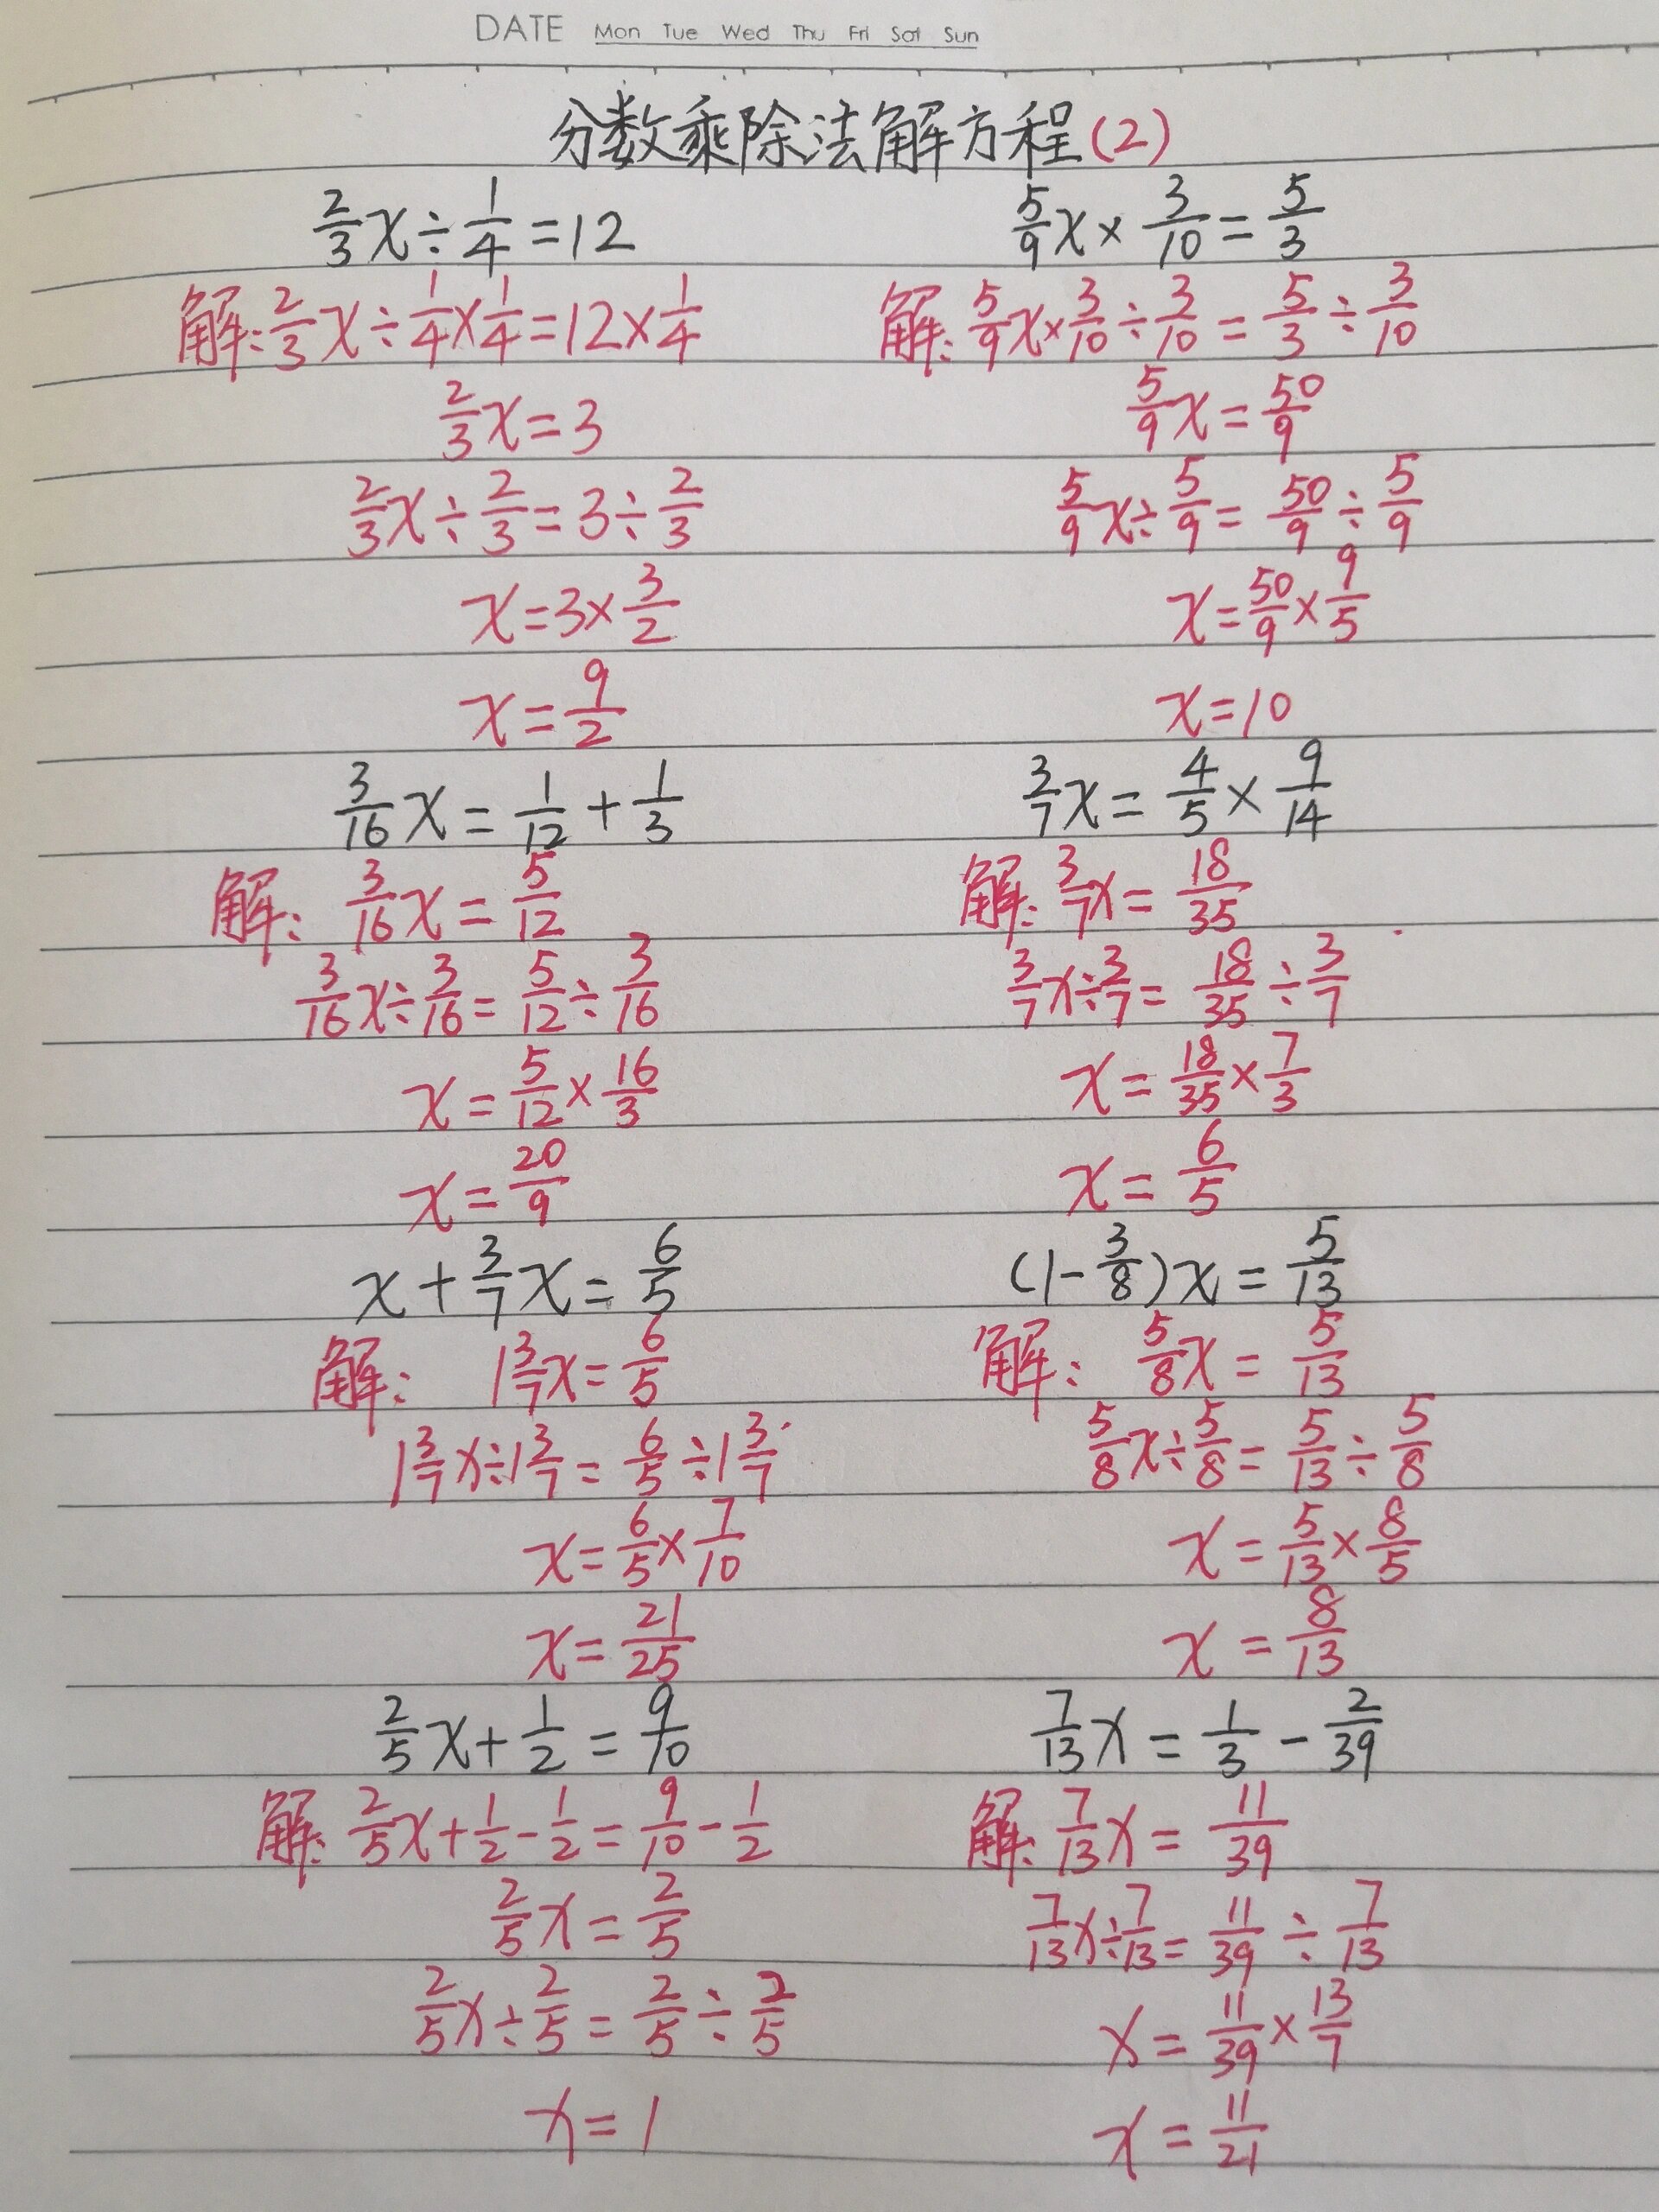 DATE Mon Tue Wed Thu Fri Sat Sun
分数乘除法解方程(2)
2/3x÷1/4=12
解:2/3x÷1/4×1/4=12×1/4
2/3x=3
2/3x÷2/3=3÷2/3
x=3×3/2
x=9/2
5/9x×3/10=5/3
解:5/9x×3/10÷3/10=5/3÷3/10
5/9x=50/9
5/9x÷5/9=50/9÷5/9
x=50/9×9/5
x=10
3/16x=1/12+1/3
解:3/16x=5/12
3/16x÷3/16=5/12÷3/16
x=5/12×16/3
x=20/9
3/7x=4/5×9/14
解:3/7x=18/35
3/7x÷3/7=18/35÷3/7
x=18/35×7/3
x=6/5
x+3/7x=6/5
解:1 3/7x=6/5
1 3/7x÷1 3/7=6/5÷1 3/7
x=6/5×7/10
x=21/25
(1-3/8)x=5/13
解:5/8x=5/13
5/8x÷5/8=5/13÷5/8
x=5/13×8/5
x=8/13
2/5x+1/2=9/10
解:2/5x+1/2-1/2=9/10-1/2
2/5x=2/5
2/5x÷2/5=2/5÷2/5
x=1
7/13x=1/3-2/39
解:7/13x=11/39
7/13x÷7/13=11/39÷7/13
x=11/39×13/7
x=11/21